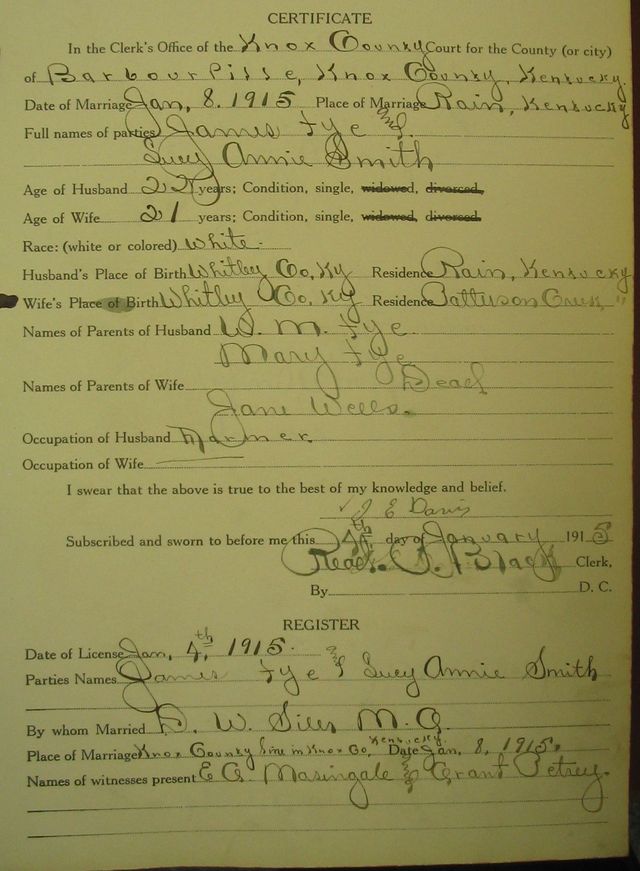 CERTIFICATE
In the Clerk's Office of the Knox County Court for the County (or city)
of Barbourville, Knox County, Kentucky.
Date of Marriage Jan, 8. 1915 Place of Marriage Rain, Kentucky
Full names of parties James Fye &
Lucy Annie Smith
Age of Husband 22 years; Condition, single, widowed, divorced,
Age of Wife 21 years; Condition, single, widowed, divorced
Race: (white or colored) white.
Husband's Place of Birth Whitley Co, Ky Residence Rain, Kentucky
Wife's Place of Birth Whitley Co, Ky Residence Patterson Creek, "
Names of Parents of Husband W. M. Fye.
Mary Fye
Names of Parents of Wife Dead
Jane Wells.
Occupation of Husband Farmer
Occupation of Wife
I swear that the above is true to the best of my knowledge and belief.
J E Davis
Subscribed and sworn to before me this 4th day of January 1915
Read P. Black Clerk,
By D. C.
REGISTER
Date of License Jan, 4th, 1915.
Parties Names James Fye & Lucy Annie Smith
By whom Married D. W. Siler M. G.
Place of Marriage Knox County line in Knox Co, Kentucky. Date Jan, 8, 1915.
Names of witnesses present E G. Masingale & Grant Petrey.